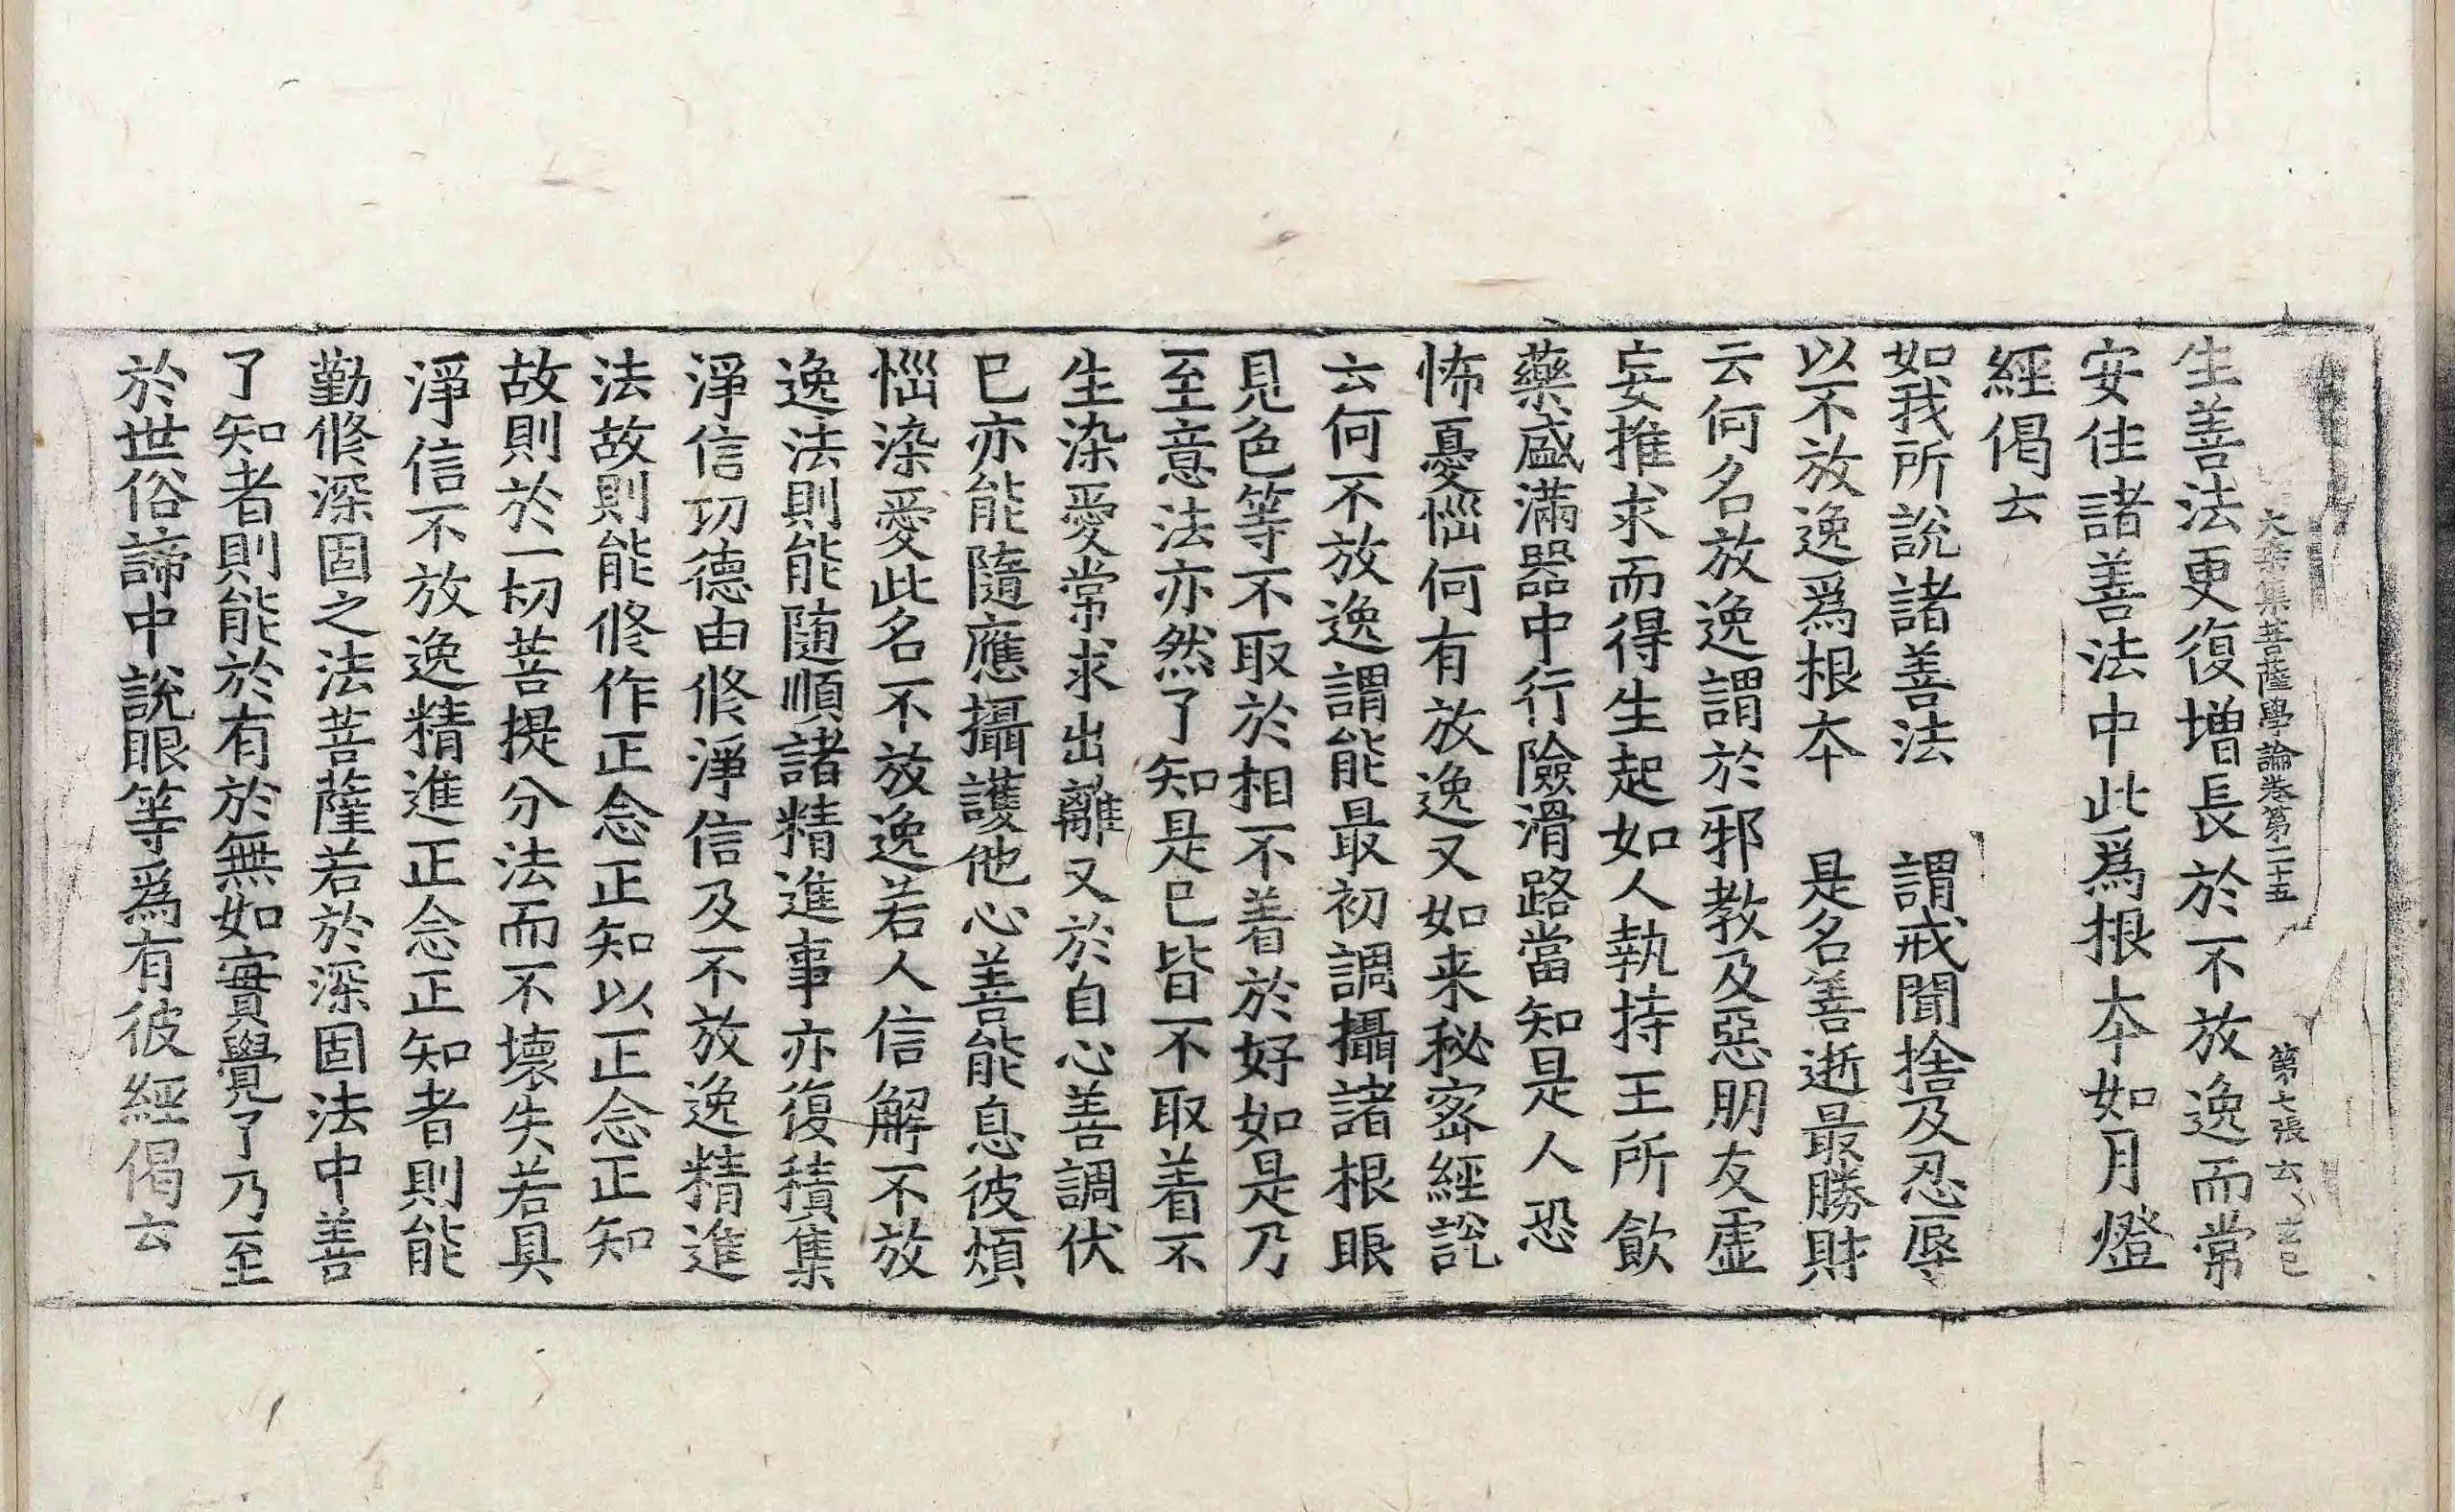 大乘集菩薩學論卷第二十五 第七張
生善法更復增長於不放逸而常
安住諸善法中此爲根本如月燈
經偈云
如我所說諸善法 謂戒聞捨及忍辱
以不放逸爲根本 是名善逝最勝財
云何名放逸謂於邪教及惡朋友虛
妄推求而得生起如人執持王所飲
藥盛滿器中行險滑路當知是人恐
怖憂惱何有放逸又如来秘密經說
云何不放逸謂能最初調攝諸根眼
見色等不取於相不著於好如是乃
至意法亦然了知是已皆不取著不
生染愛常求出離又於自心善調伏
已亦能隨應攝護他心善能息彼煩
惱染愛此名不放逸若人信解不放
逸法則能隨順諸精進事亦復積集
淨信功德由修淨信及不放逸精進
法故則能修作正念正知以正念正知
故則於一切菩提分法而不壞失若具
淨信不放逸精進正念正知者則能
勤修深固之法菩薩若於深固法中善
了知者則能於有於無如實覺了乃至
於世俗諦中說眼等爲有彼經偈云